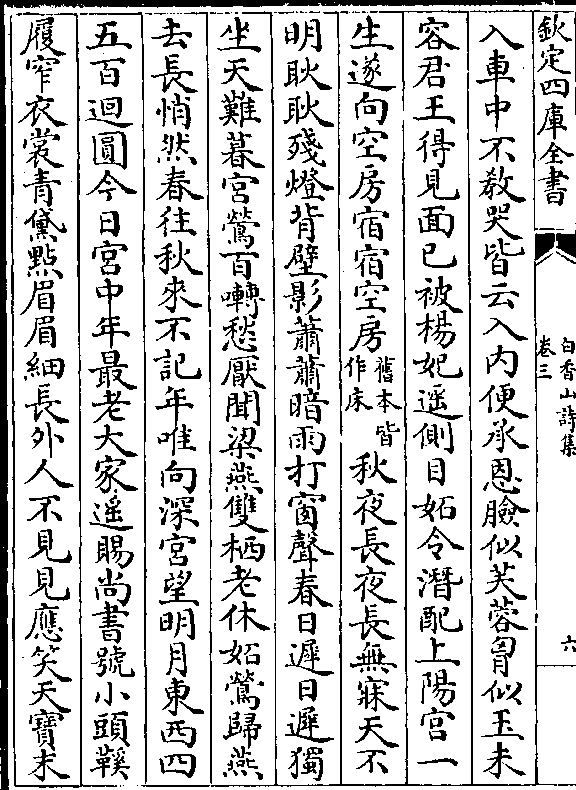 欽定四庫全書
白香山詩集
卷三
六
入車中不教哭皆云入內便承恩臉似芙蓉胷似玉未
容君王得見面已被楊妃遥側目妬令潛配上陽宫一
生遂向空房宿宿空房舊本皆作床秋夜長夜長無寐天不
明耿耿殘燈背壁影蕭蕭暗雨打窗聲春日遲日遲獨
坐天難暮宮鶯百囀愁厭聞梁燕雙栖老休妬鶯歸燕
去長悄然春往秋來不記年唯向深宮望明月東西四
五百迴圓今日宮中年最老大家遥賜尚書號小頭鞵
履窄衣裳青黛㸃眉眉細長外人不見見應笑天寶末